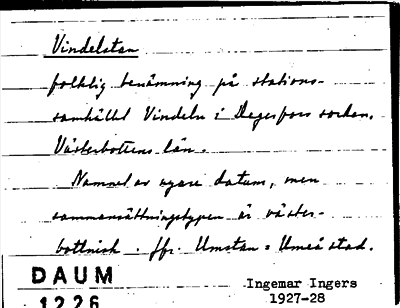 Vindelstan
folklig benämning på stations-
samhället Vindeln i Degerfors socken,
Västerbottens län.
Namnet av yngre datum, men
sammansättningstypen är väster-
bottnisk. Jfr. Umstan = Umeå stad.
DAUM
1226
Ingemar Ingers
1927-28